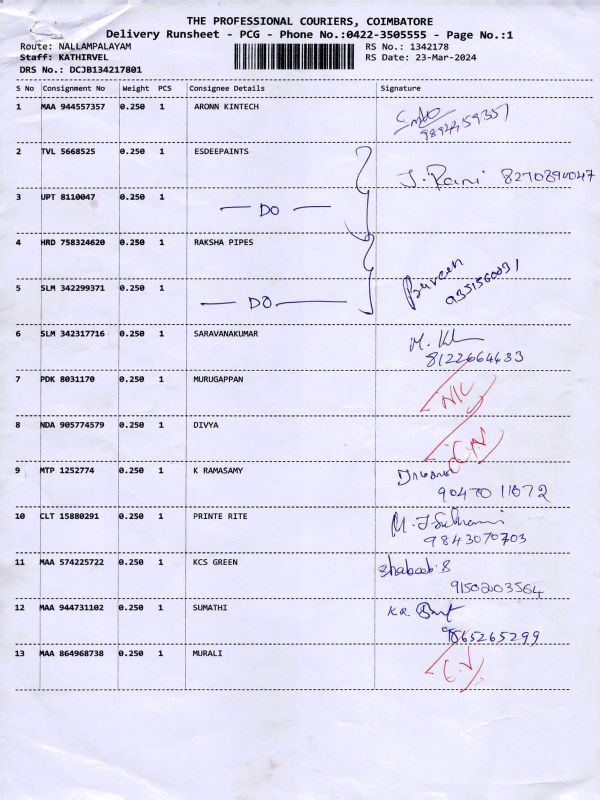 THE PROFESSIONAL COURIERS, COIMBATORE
Delivery Runsheet - PCG - Phone No.:0422-3505555 - Page No.:1
Route: NALLAMPALAYAM RS No.: 1342178
Staff: KATHIRVEL RS Date: 23-Mar-2024
DRS No.: DCJB134217801
S No Consignment No Weight PCS Consignee Details Signature
1 MAA 944557357 0.250 1 ARONN KINTECH
2 TVL 5668525 0.250 1 ESDEEPAINTS
J. Rani 8270890047
3 UPT 8110047 0.250 1
DO
4 HRD 758324620 0.250 1 RAKSHA PIPES
Praveen
5 SLM 342299371 0.250 1
DO
6 SLM 342317716 0.250 1 SARAVANAKUMAR
8122664633
7 PDK 8031170 0.250 1 MURUGAPPAN
8 NDA 905774579 0.250 1 DIVYA
9 MTP 1252774 0.250 1 K RAMASAMY
9047011072
10 CLT 15880291 0.250 1 PRINTE RITE
9843070703
11 MAA 574225722 0.250 1 KCS GREEN
Shabeeb.S
9150203564
12 MAA 944731102 0.250 1 SUMATHI
K.R.
9865265299
13 MAA 864968738 0.250 1 MURALI